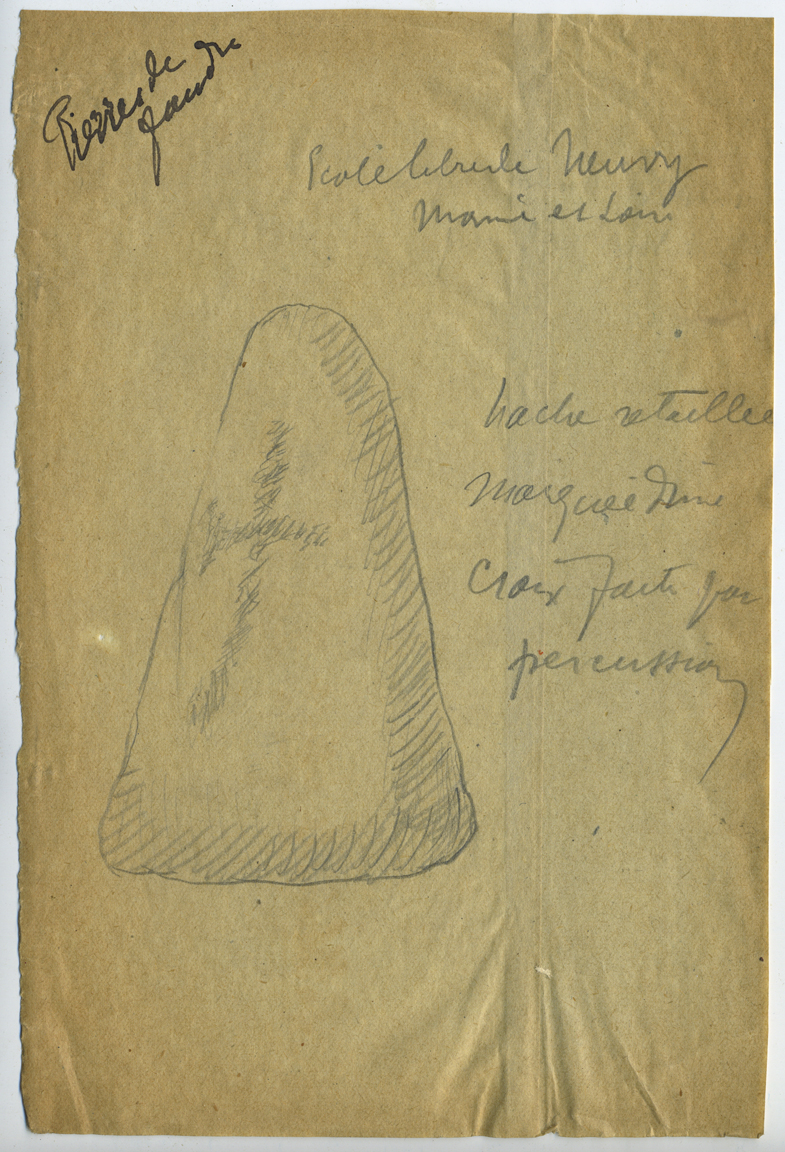 Pierres de
foudre
Ecole libre de Neuvy
Maine et Loire
hache retaillée
marquée d'une
croix faite par
percussion